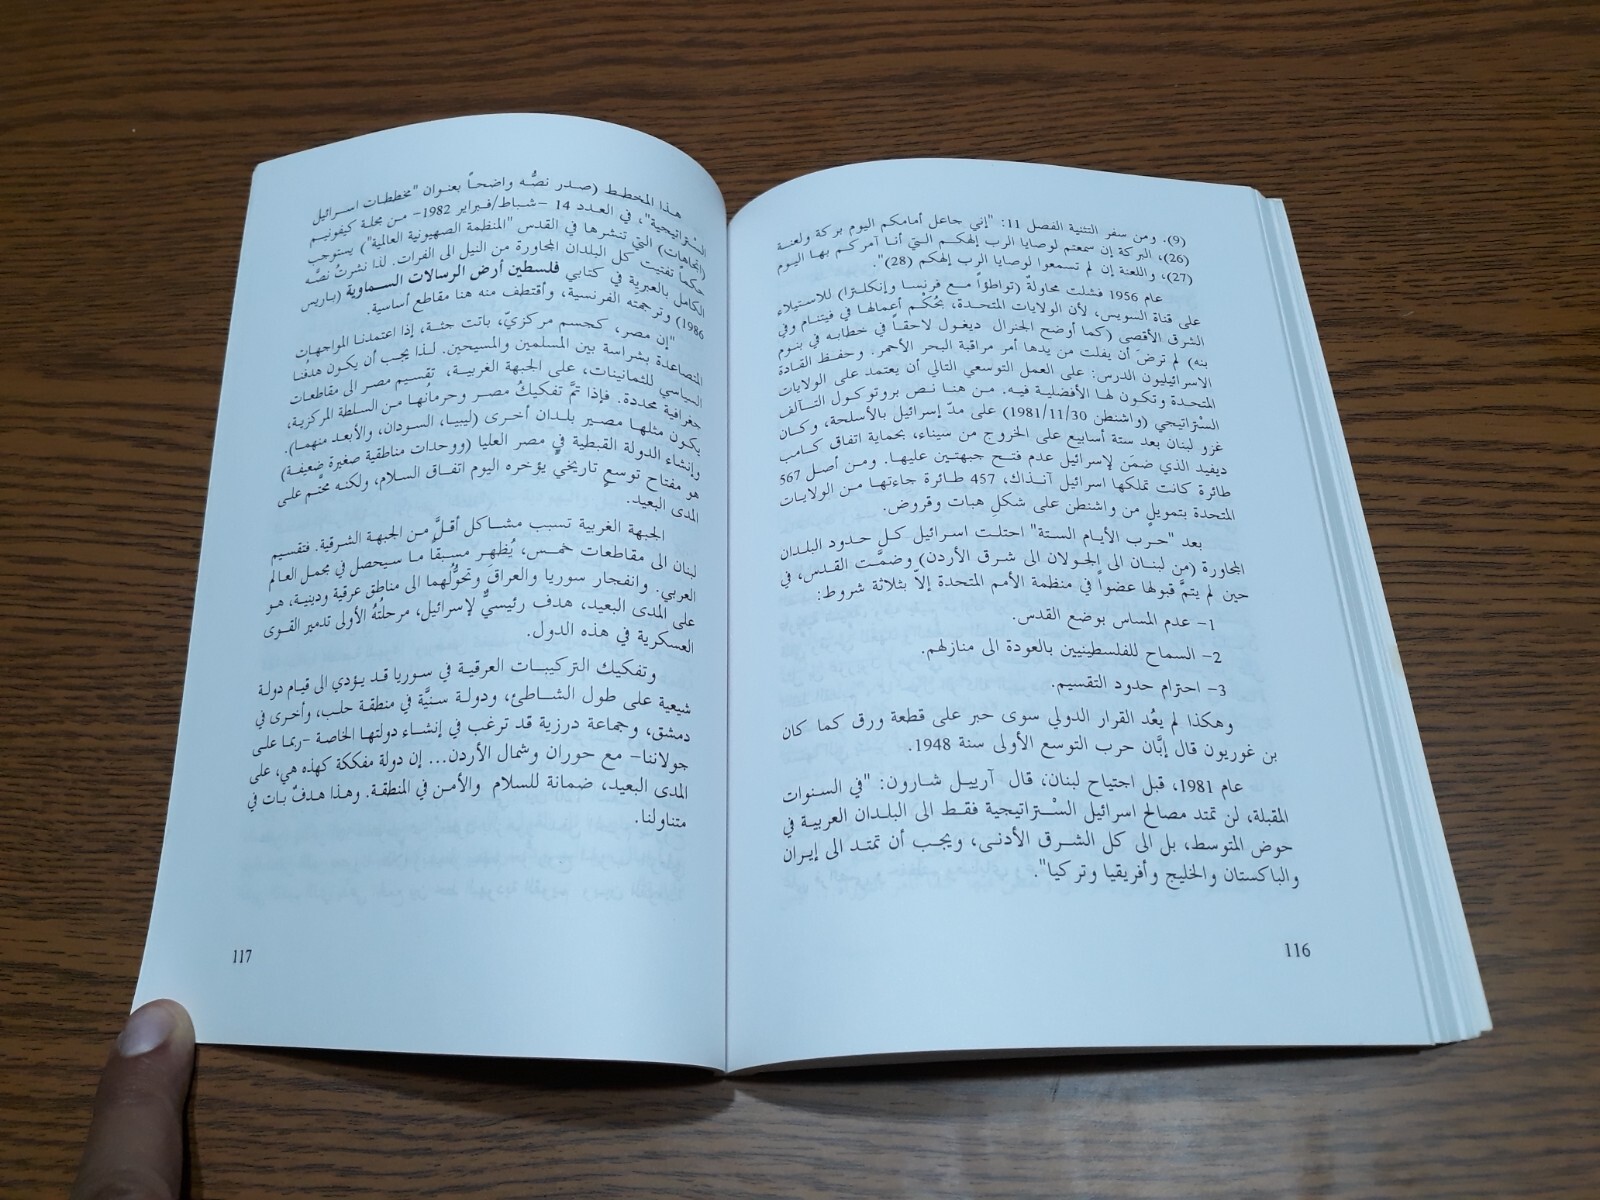 (9). ومن سفر التثنية الفصل 11: "إني جاعل أمامكم اليوم بركة ولعنة
(26)، البركة إن سمعتم لوصايا الرب إلهكم التي أنا آمركم بها اليوم
(27)، واللعنة إن لم تسمعوا لوصايا الرب إلهكم (28)".
عام 1956 فشلت محاولةٌ (تواطؤاً مع فرنسا وإنكلترا) للاستيلاء
على قناة السويس، لأن الولايات المتحدة، بحُكْم أعمالها في فيتنام وفي
الشرق الأقصى (كما أوضح الجنرال ديغول لاحقاً في خطابه في بنوم
بنه) لم ترضَ أن يفلت من يدها أمر مراقبة البحر الأحمر. وحفظ القادة
الاسرائيليون الدرس: على العمل التوسعي التالي أن يعتمد على الولايات
المتحدة وتكون لها الأفضلية فيه. من هنا نص بروتوكول التآلف
الستْراتيجي (واشنطن 1981/11/30) على مدّ إسرائيل بالأسلحة، وكان
غزو لبنان بعد ستة أسابيع على الخروج من سيناء، بحماية اتفاق كامب
ديفيد الذي ضمَن لإسرائيل عدم فتح جبهتين عليها. ومن أصل 567
طائرة كانت تملكها اسرائيل آنذاك، 457 طائرة جاءتها من الولايات
المتحدة بتمويلٍ من واشنطن على شكلِ هبات وقروض.
بعد "حرب الأيام الستة" احتلت اسرائيل كل حدود البلدان
المجاورة (من لبنان الى الجولان الى شرق الأردن) وضمَّت القدس، في
حين لم يتمَّ قبولها عضواً في منظمة الأمم المتحدة إلاّ بثلاثة شروط:
1– عدم المساس بوضع القدس.
2– السماح للفلسطينيين بالعودة الى منازلهم.
3– احترام حدود التقسيم.
وهكذا لم يعُد القرار الدولي سوى حبر على قطعة ورق كما كان
بن غوريون قال إبَّان حرب التوسع الأولى سنة 1948.
عام 1981، قبل اجتياح لبنان، قال آرييل شارون: "في السنوات
المقبلة، لن تمتد مصالح اسرائيل الستْراتيجية فقط الى البلدان العربية في
حوض المتوسط، بل الى كل الشرق الأدنى، ويجب أن تمتد الى إيران
والباكستان والخليج وأفريقيا وتركيا".
116
هذا المخطط (صدر نصُّه واضحاً بعنوان "مخططات اسرائيل
الستْراتيجية"، في العدد 14 –شباط/فبراير 1982– من مجلة كيفونيم
(اتجاهات) التي تنشرها في القدس "المنظمة الصهيونية العالمية") يستوجب
حكماً تفتيت كل البلدان المجاورة من النيل الى الفرات. لذا نشرتُ نصَّه
الكامل بالعبرية في كتابي فلسطين أرض الرسالات السماوية (باريس
1986) وترجمته الفرنسية، وأقتطف منه هنا مقاطع أساسية.
"إن مصر، كجسم مركزيّ، باتت جثة، إذا اعتمدنا المواجهات
المتصاعدة بشراسة بين المسلمين والمسيحين. لذا يجب أن يكون هدفُنا
السياسي للثمانينات، على الجبهة الغربية، تقسيم مصر الى مقاطعات
جغرافية محددة. فإذا تمَّ تفكيكُ مصر وحرمانُها من السلطة المركزية،
يكون مثلها مصير بلدان أخرى (ليبيا، السودان، والأبعد منهما).
وإنشاء الدولة القبطية في مصر العليا (ووحدات مناطقية صغيرة ضعيفة)
هو مفتاح توسعٍ تاريخيٍّ يؤخره اليوم اتفاق السلام، ولكنه محتَّم على
المدى البعيد.
الجبهة الغربية تسبب مشاكل أقلَّ من الجبهة الشرقية. فتقسيم
لبنان الى مقاطعات خمس، يُظهِر مسبقاً ما سيحصل في مجمل العالم
العربي. وانفجار سوريا والعراق وتحوُّلُهما الى مناطق عرقية ودينية، هو
على المدى البعيد، هدف رئيسيٌّ لإسرائيل، مرحلتُهُ الأولى تدمير القوى
العسكرية في هذه الدول.
وتفكيك التركيبات العرقية في سوريا قد يؤدي الى قيام دولة
شيعية على طول الشاطئ، ودولة سنيَّة في منطقة حلب، وأخرى في
دمشق، وجماعة درزية قد ترغب في إنشاء دولتها الخاصة –ربما على
جولاننا– مع حوران وشمال الأردن... إن دولة مفككة كهذه هي، على
المدى البعيد، ضمانة للسلام والأمن في المنطقة. وهذا هدفٌ بات في
متناولنا.
117